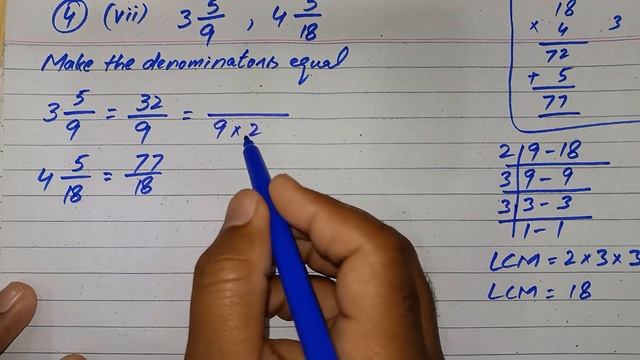 ④ (vii) 3 5/9 , 4 5/18
Make the denominators equal
3 5/9 = 32/9 = /9×2
4 5/18 = 77/18
18
× 4
72
+ 5
77
3
2|9 - 18
3|9 - 9
3|3 - 3
1 - 1
LCM = 2×3×3
LCM = 18